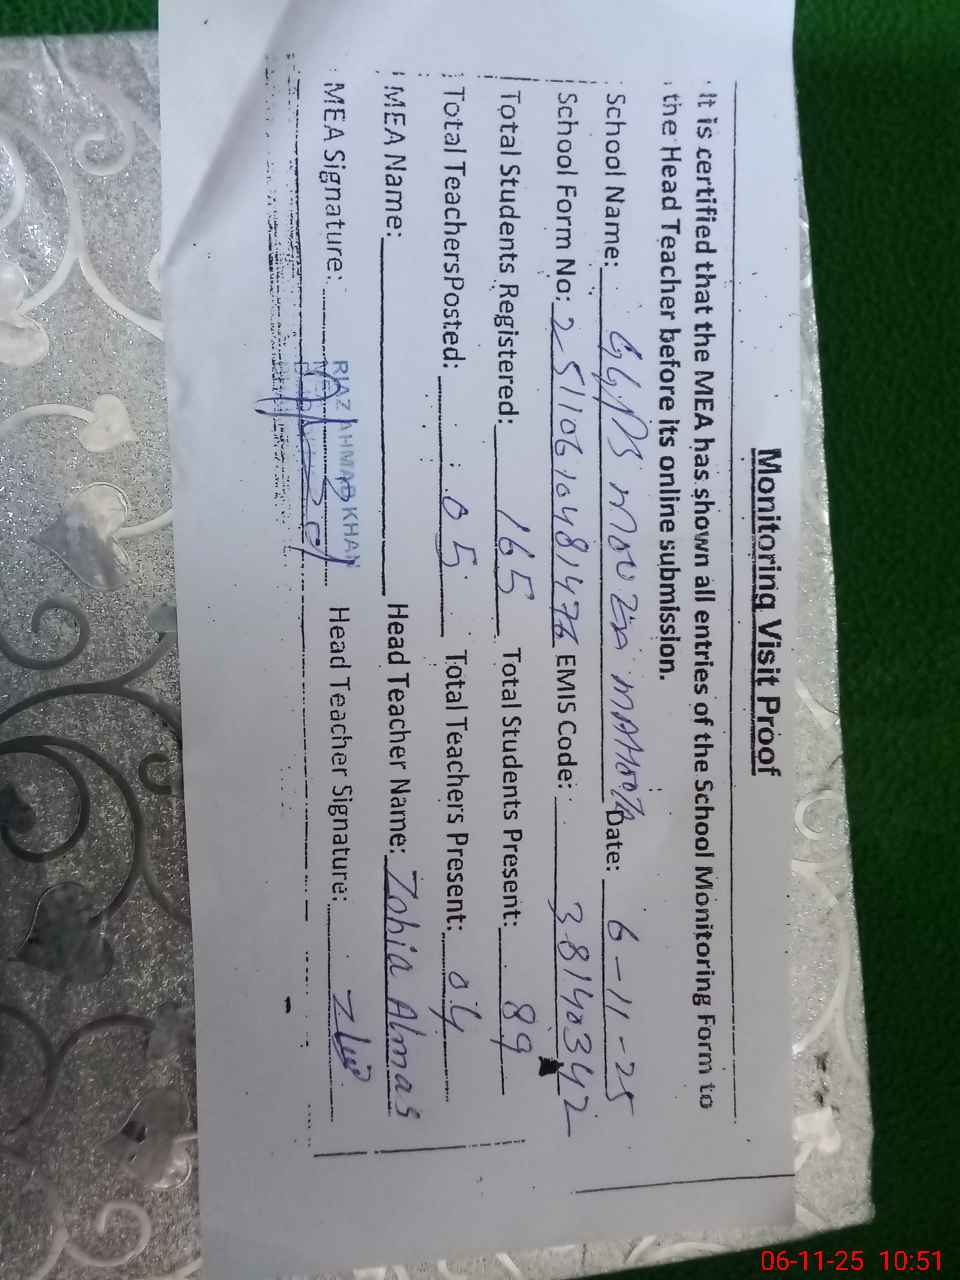 Monitoring Visit Proof
It is certified that the MEA has shown all entries of the School Monitoring Form to
the Head Teacher before its online submission.
School Name: GGPS Date: 6-11-25
School Form No: EMIS Code: 38140342
Total Students Registered: 165 Total Students Present: 89
Total TeachersPosted: 05 Total Teachers Present: 04
MEA Name: Head Teacher Name: Zohia Almas
MEA Signature: Head Teacher Signature:
RIAZ AHMAD KHAN
06-11-25 10:51